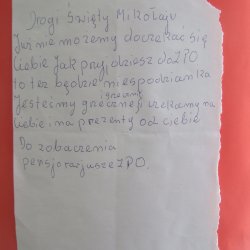 Drogi Święty Mikołaju
Już nie możemy doczekać się
Ciebie Jak przyjdziesz do ZPO
to też będzie niespodzianka
Jesteśmy grzeczne i czekamy na
i grzeczni
Ciebie i na prezenty od ciebie
Do zobaczenia
pensjonarjusze ZPO.